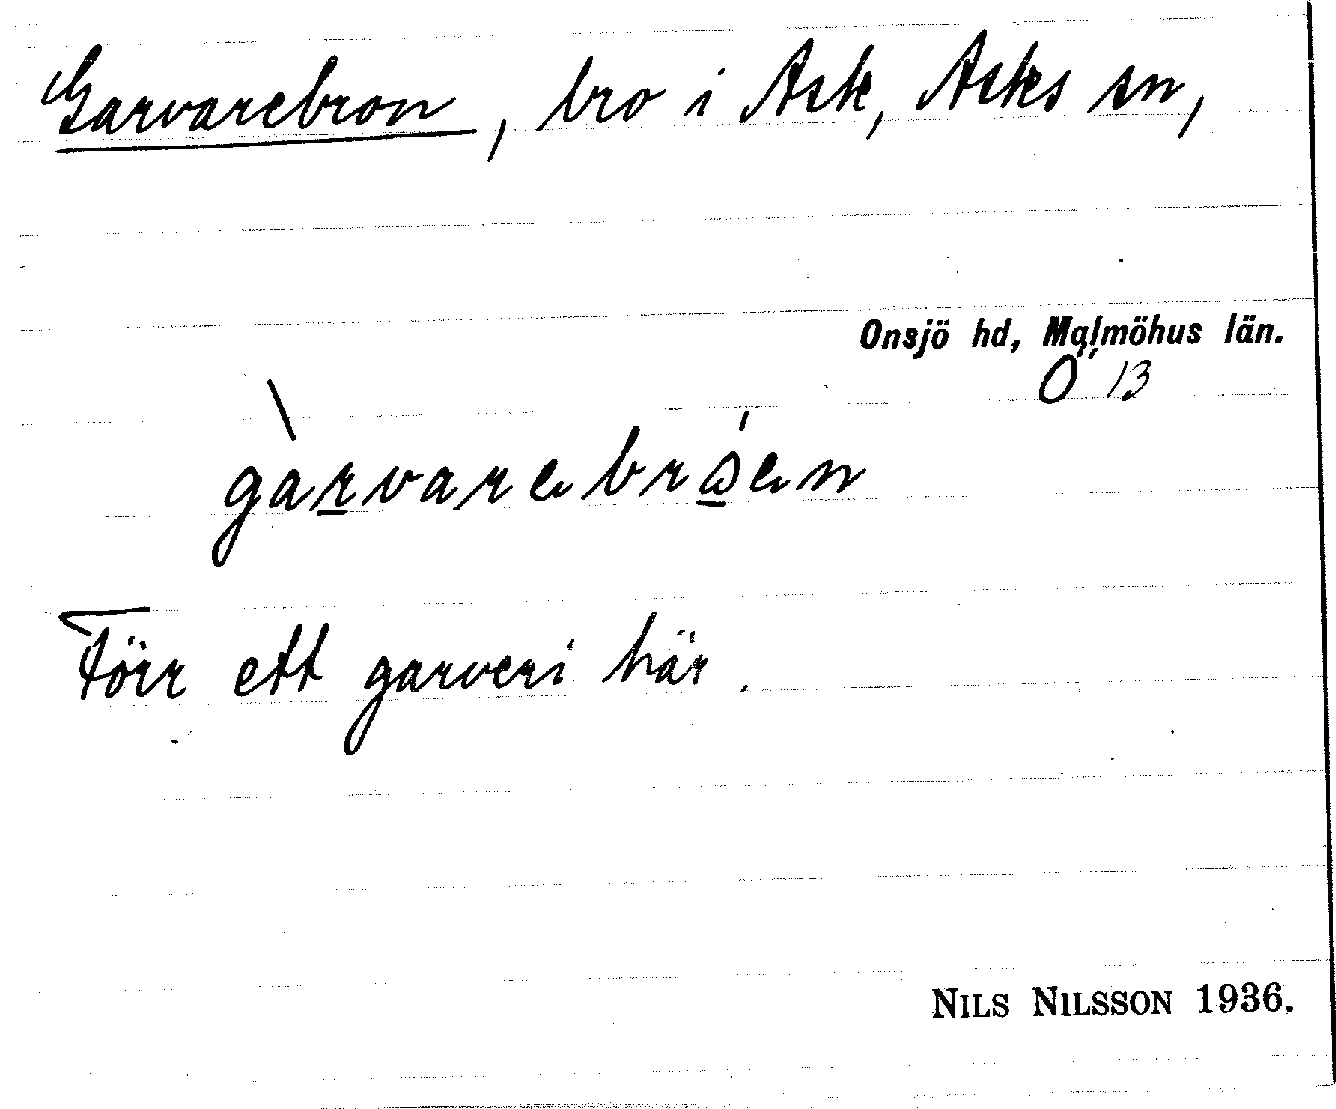 Garvarebron, bro i Ask, Asks sn,
Onsjö hd, Malmöhus län.
Ö 13
Förr ett garveri här.
NILS NILSSON 1936.